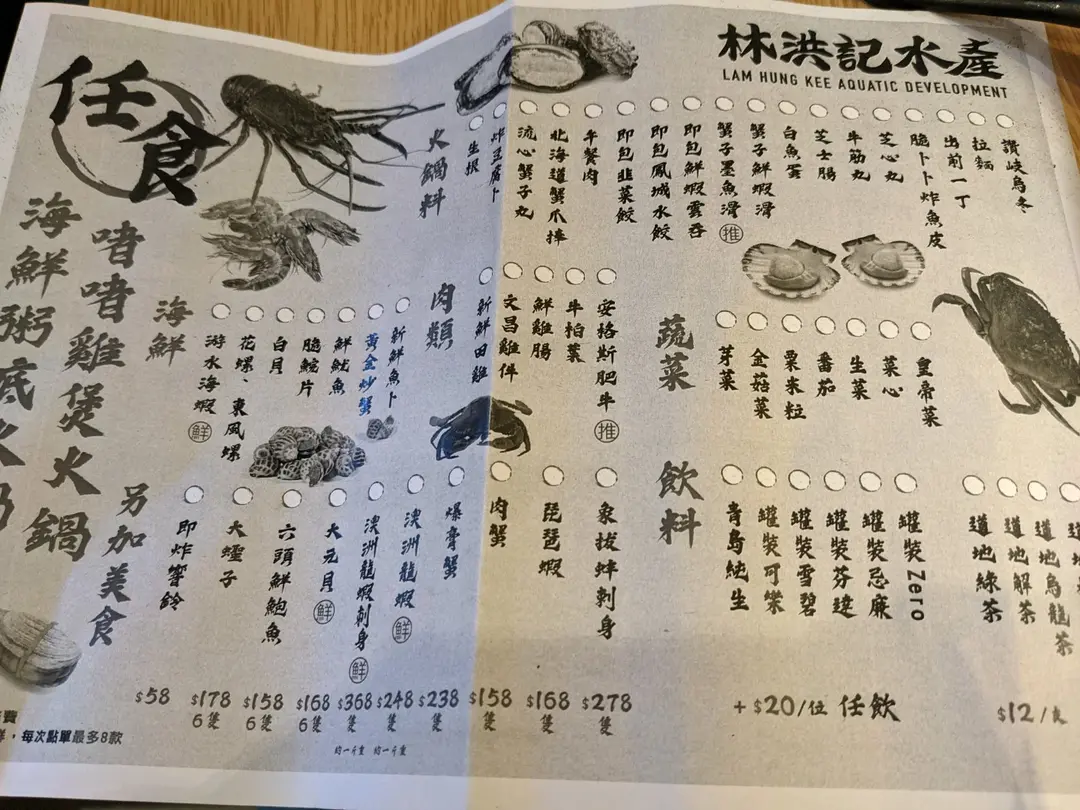 林洪記水產
LAM HUNG KEE AQUATIC DEVELOPMENT
任食
海鮮粥底火鍋
啫啫雞煲火鍋
火鍋料
生根
炸豆腐卜
流心蟹子丸
北海道蟹爪棒
午餐肉
即包韭菜餃
即包鳳城水餃
即包鮮蝦雲吞
蟹子墨魚滑 推
蟹子鮮蝦滑
白魚蛋
芝士腸
牛筋丸
芝心丸
脆卜卜炸魚皮
出前一丁
拉麵
讚岐烏冬
海鮮
游水海蝦 鮮
花螺、東風螺
白貝
脆鯇片
鮮魷魚
黃金炒蟹
新鮮魚卜
肉類
新鮮田雞
文昌雞件
鮮雞腸
牛柏葉
安格斯肥牛 推
蔬菜
芽菜
金菇菜
粟米粒
番茄
生菜
菜心
皇帝菜
另加美食
即炸響鈴
$58
大蟶子
$178
6隻
六頭鮮鮑魚
$158
6隻
大元貝 鮮
$168
6隻
澳洲龍蝦刺身 鮮
$368
隻
約一斤重
澳洲龍蝦 鮮
$248
隻
約一斤重
爆膏蟹
$238
隻
肉蟹
$158
隻
琵琶蝦
$168
隻
象拔蚌刺身
$278
隻
飲料
青島純生
罐裝可樂
罐裝雪碧
罐裝芬達
罐裝忌廉
罐裝Zero
+$20/位 任飲
道地綠茶
道地解茶
道地烏龍茶
道地
$12/支
費
,每次點單最多8款